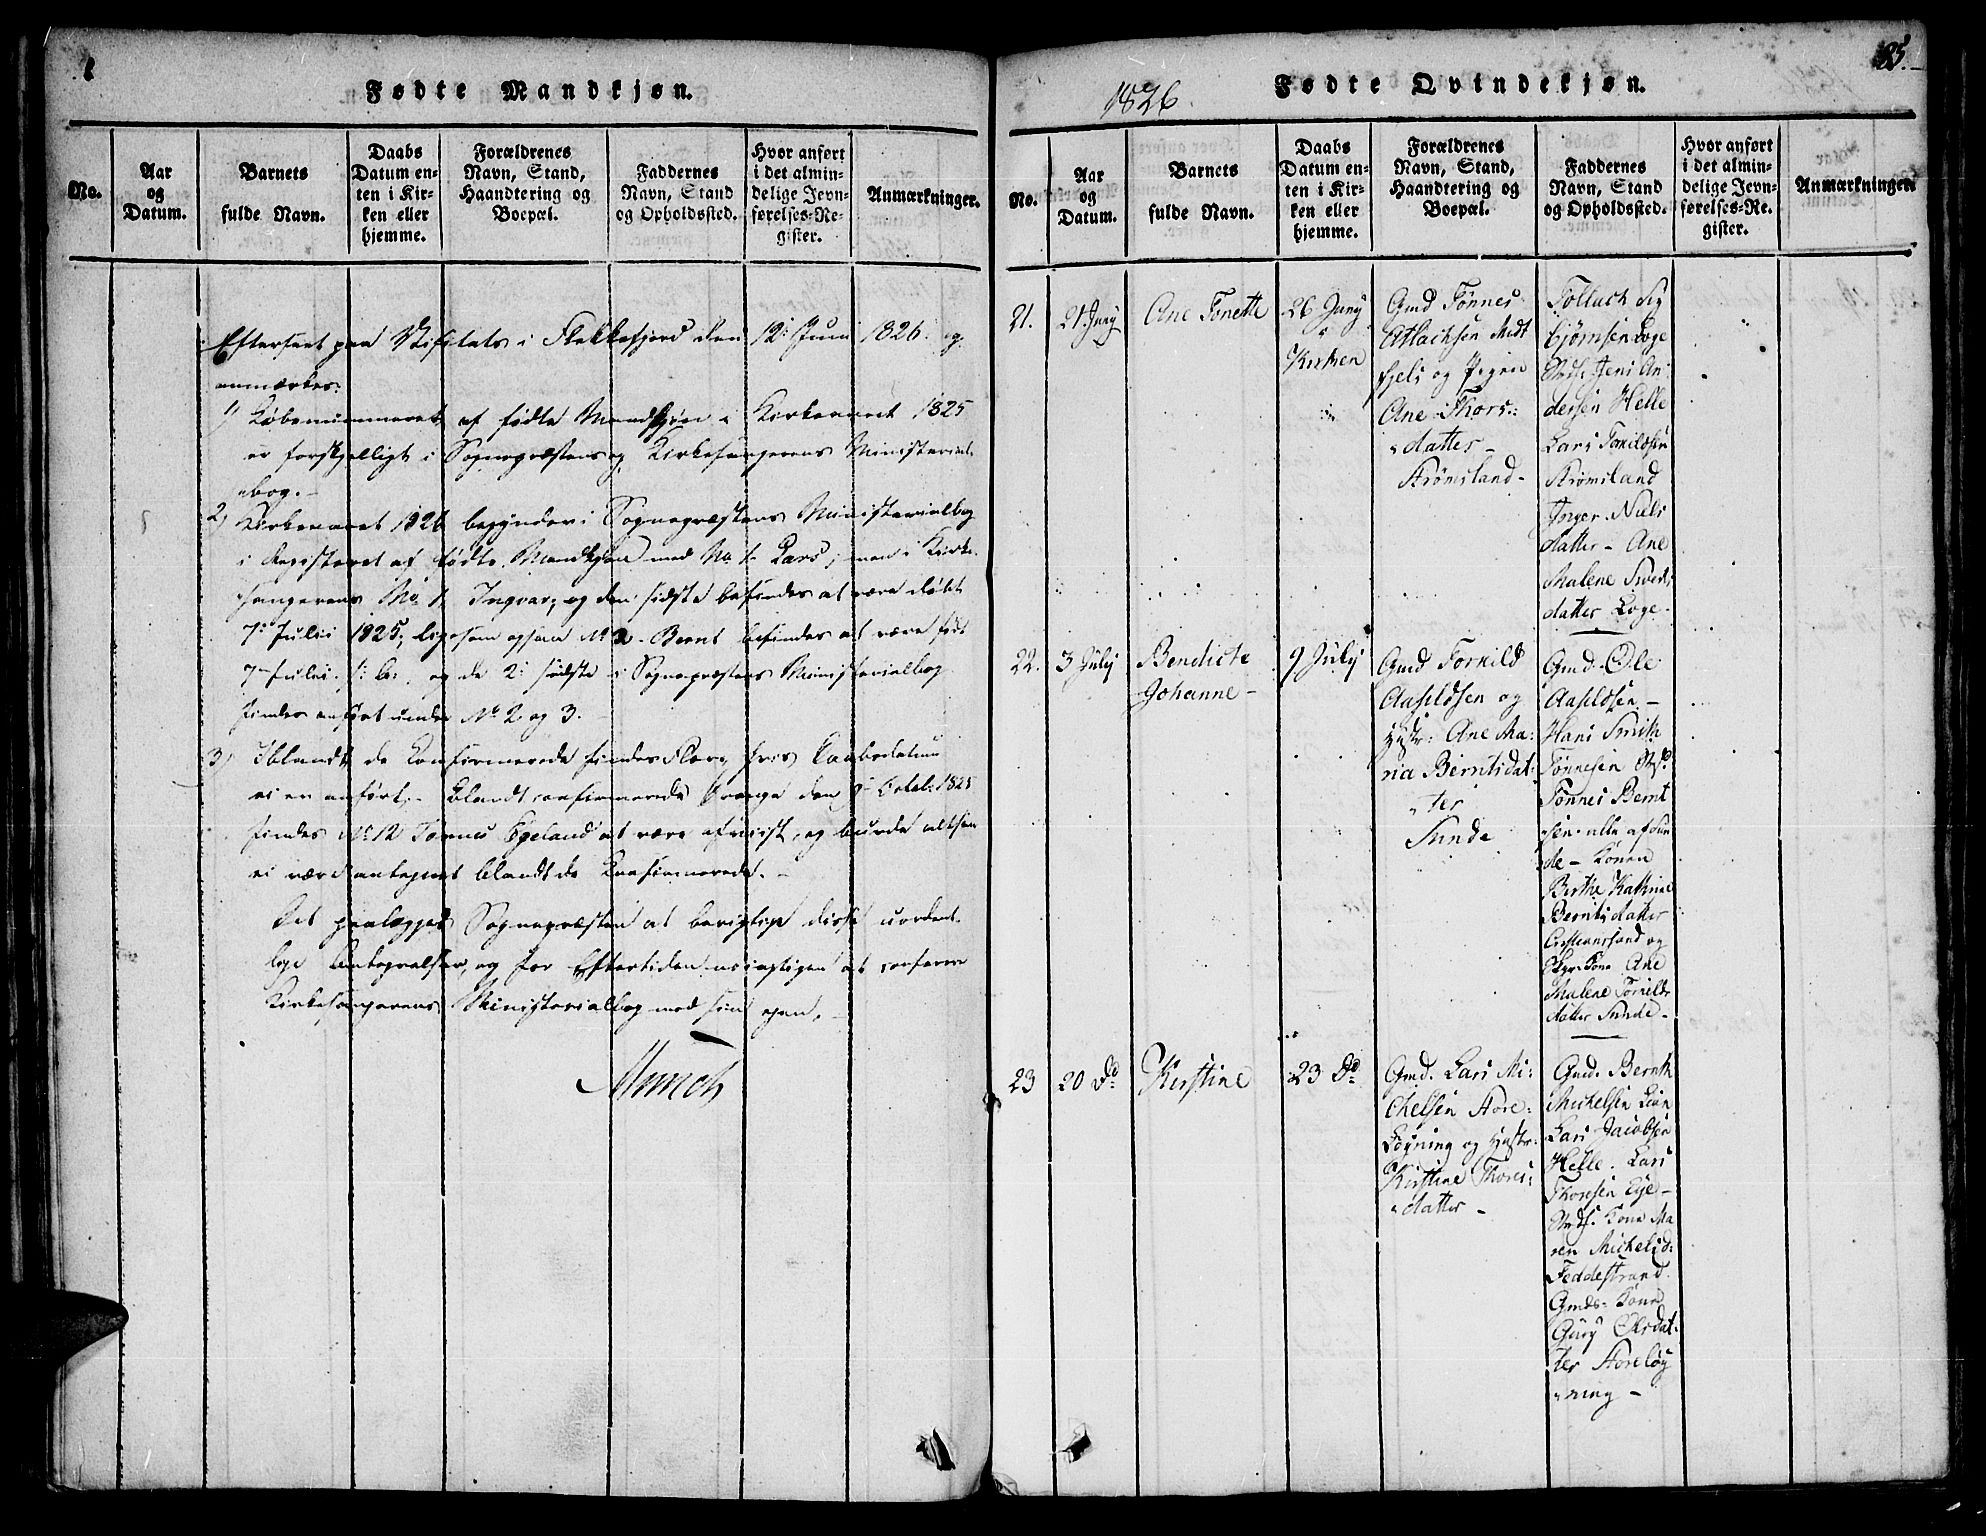 Fødte Mandkjøn.
No.
Aar
og
Datum.
Barnets
fulde Navn.
Daabs
Datum en-
ten i Kir-
ken eller
hjemme.
Forældrenes
Navn, Stand,
Haandtering og
Boepæl.
Faddernes
Navn, Stand
og Opholdssted.
Hvor anført
i det almin-
delige Jevn-
førelses-Re-
gister.
Anmærkninger.
Efterseet paa Visitats i Flekkefjord den 12 Juni 1826. og
anmærkes:
1) Løbenummeret af fødte Mandkjøn i Kirkeaaret 1825
er forskjelligt i Sognepræstens og Kirkesangerens Ministerial-
bog. -
2) Kirkeaaret 1826 begynder i Sognepræstens Ministerialbog
i Registeret af fødte Mandkjøn med No 1. Lars; men i Kirke-
sangerens No 1, Ingvar; og den sidste befindes at være døbt
7 Julii 1825; ligesom ogsaa No 2. Bernt befindes at være født
7 Julii og de 2 sidste i Sognepræstens Ministerialbog
findes anført under No 2 og 3. -
3) Iblandt de Confirmerede findes Fleer, hvis Daabsdatum
ei er anført. - Blandt confirmerede Drenge den Octob: 1825
findes No 12 Tønnes Egeland at være afviist, og burde altsaa
ei være antegnet blandt de Confirmerede. -
Det paalægges Sognepræsten at berigtige disse uordent-
lige Antegnelser, og for Eftertiden nøiagtigen at conferere
Kirkesangerens Ministerialbog med sin egen. -
Munch
1826.
Fødte Qvindekjøn.
85.
No.
Aar
og
Datum.
Barnets
fulde Navn.
Daabs
Datum en-
ten i Kir-
ken eller
hjemme.
Forældrenes
Navn, Stand,
Haandtering og
Boepæl.
Faddernes
Navn, Stand
og Opholdssted.
Hvor anført
i det almin-
delige Jevn-
førelses-Re-
gister.
Anmærkninger
21.
21 Juny
Ane Tonette
26 Juny
i
Kirken
Gmd Tønnes
Atlachsen Midt
fjels og Pigen
Ane Thors:
datter -
Strømsland -
Tollach Sig
bjørnsen Loge
Jens An:
dersen Helle
Lars Torkildsen
Strømsland
Inger Niels
datter - Ane
Malene Siverts
datter Loge.
22.
3 July
Bendicte
Johanne -
9 July
Gmd Torkild
Aasildsen og
Hustr: Ane Ma:
ria Berntsdat:
ter
Sunde
Gmd. Ole
Aasildsen -
Hans Smith
Tønnesen
Tønnes Bernt
sen. alle af Sun
de - Konen
Birthe Kathrine
Berntsdatter
Cristiansand og
Kone Ane
Malene Torkilds
datter Sunde -
23
20 Do
Kirstine
23 Do
Gmd. Lars Mi:
chelsen Store:
Løgning og Hustr:
Kirstine Thores:
datter -
Gmd. Bernth
Michelsen
Lars Jacobsen
Helle. Lars
Thoresen Eye -
Kone Ma
ren Michelsd:
Feddestrand.
Gmds. Kone
Gury Olsdat:
ter Storeløg
ning -